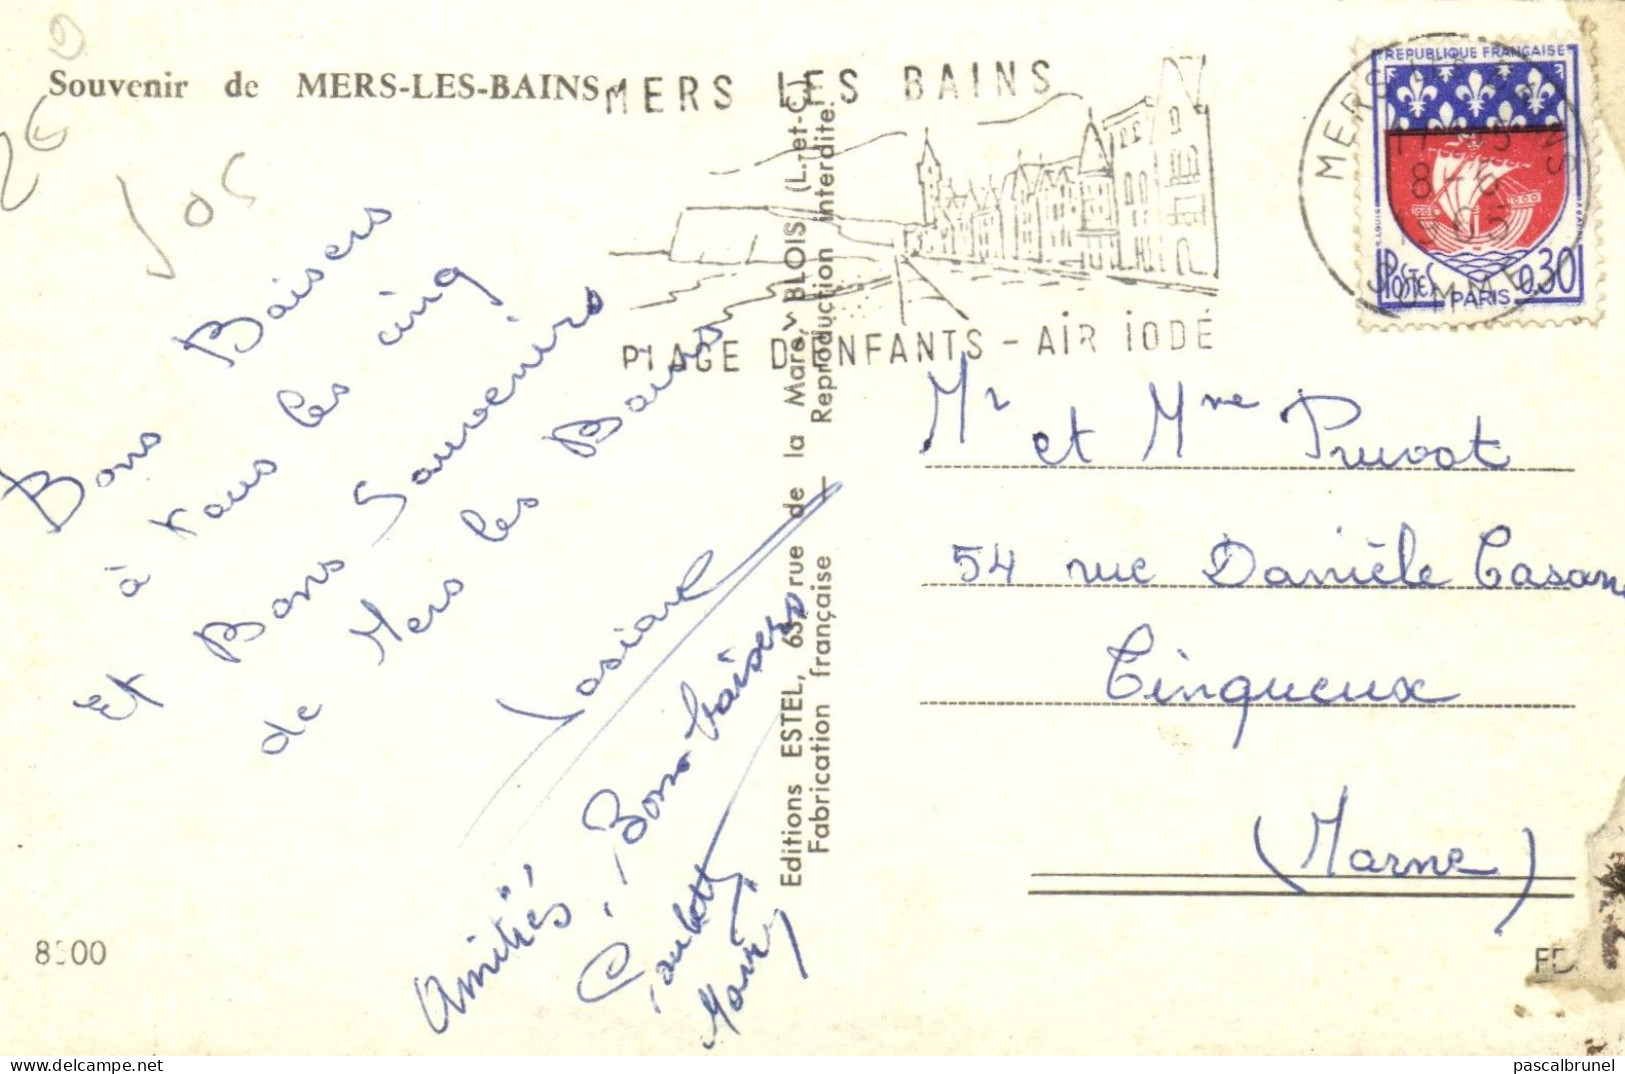 Souvenir de MERS-LES-BAINS
MERS LES BAINS
PLAGE D'ENFANTS - AiR iODÉ
REPUBLIQUE FRANÇAISE
POSTES
PARIS
0,30
SOMME
Bons Baisers
à vous les cinq
Et Bons Souvenirs
de Mers les Bains
Josiane
Amitiés, Bons baisers
Paulette
Editions ESTEL, 63, rue de la Mare, BLOIS (L.-et-C.)
Fabrication française — Reproduction interdite.
Mr et Mme Pruvot
54 rue Danièle Casan
Cinqueux
(Marne)
FD
pascalbrunel